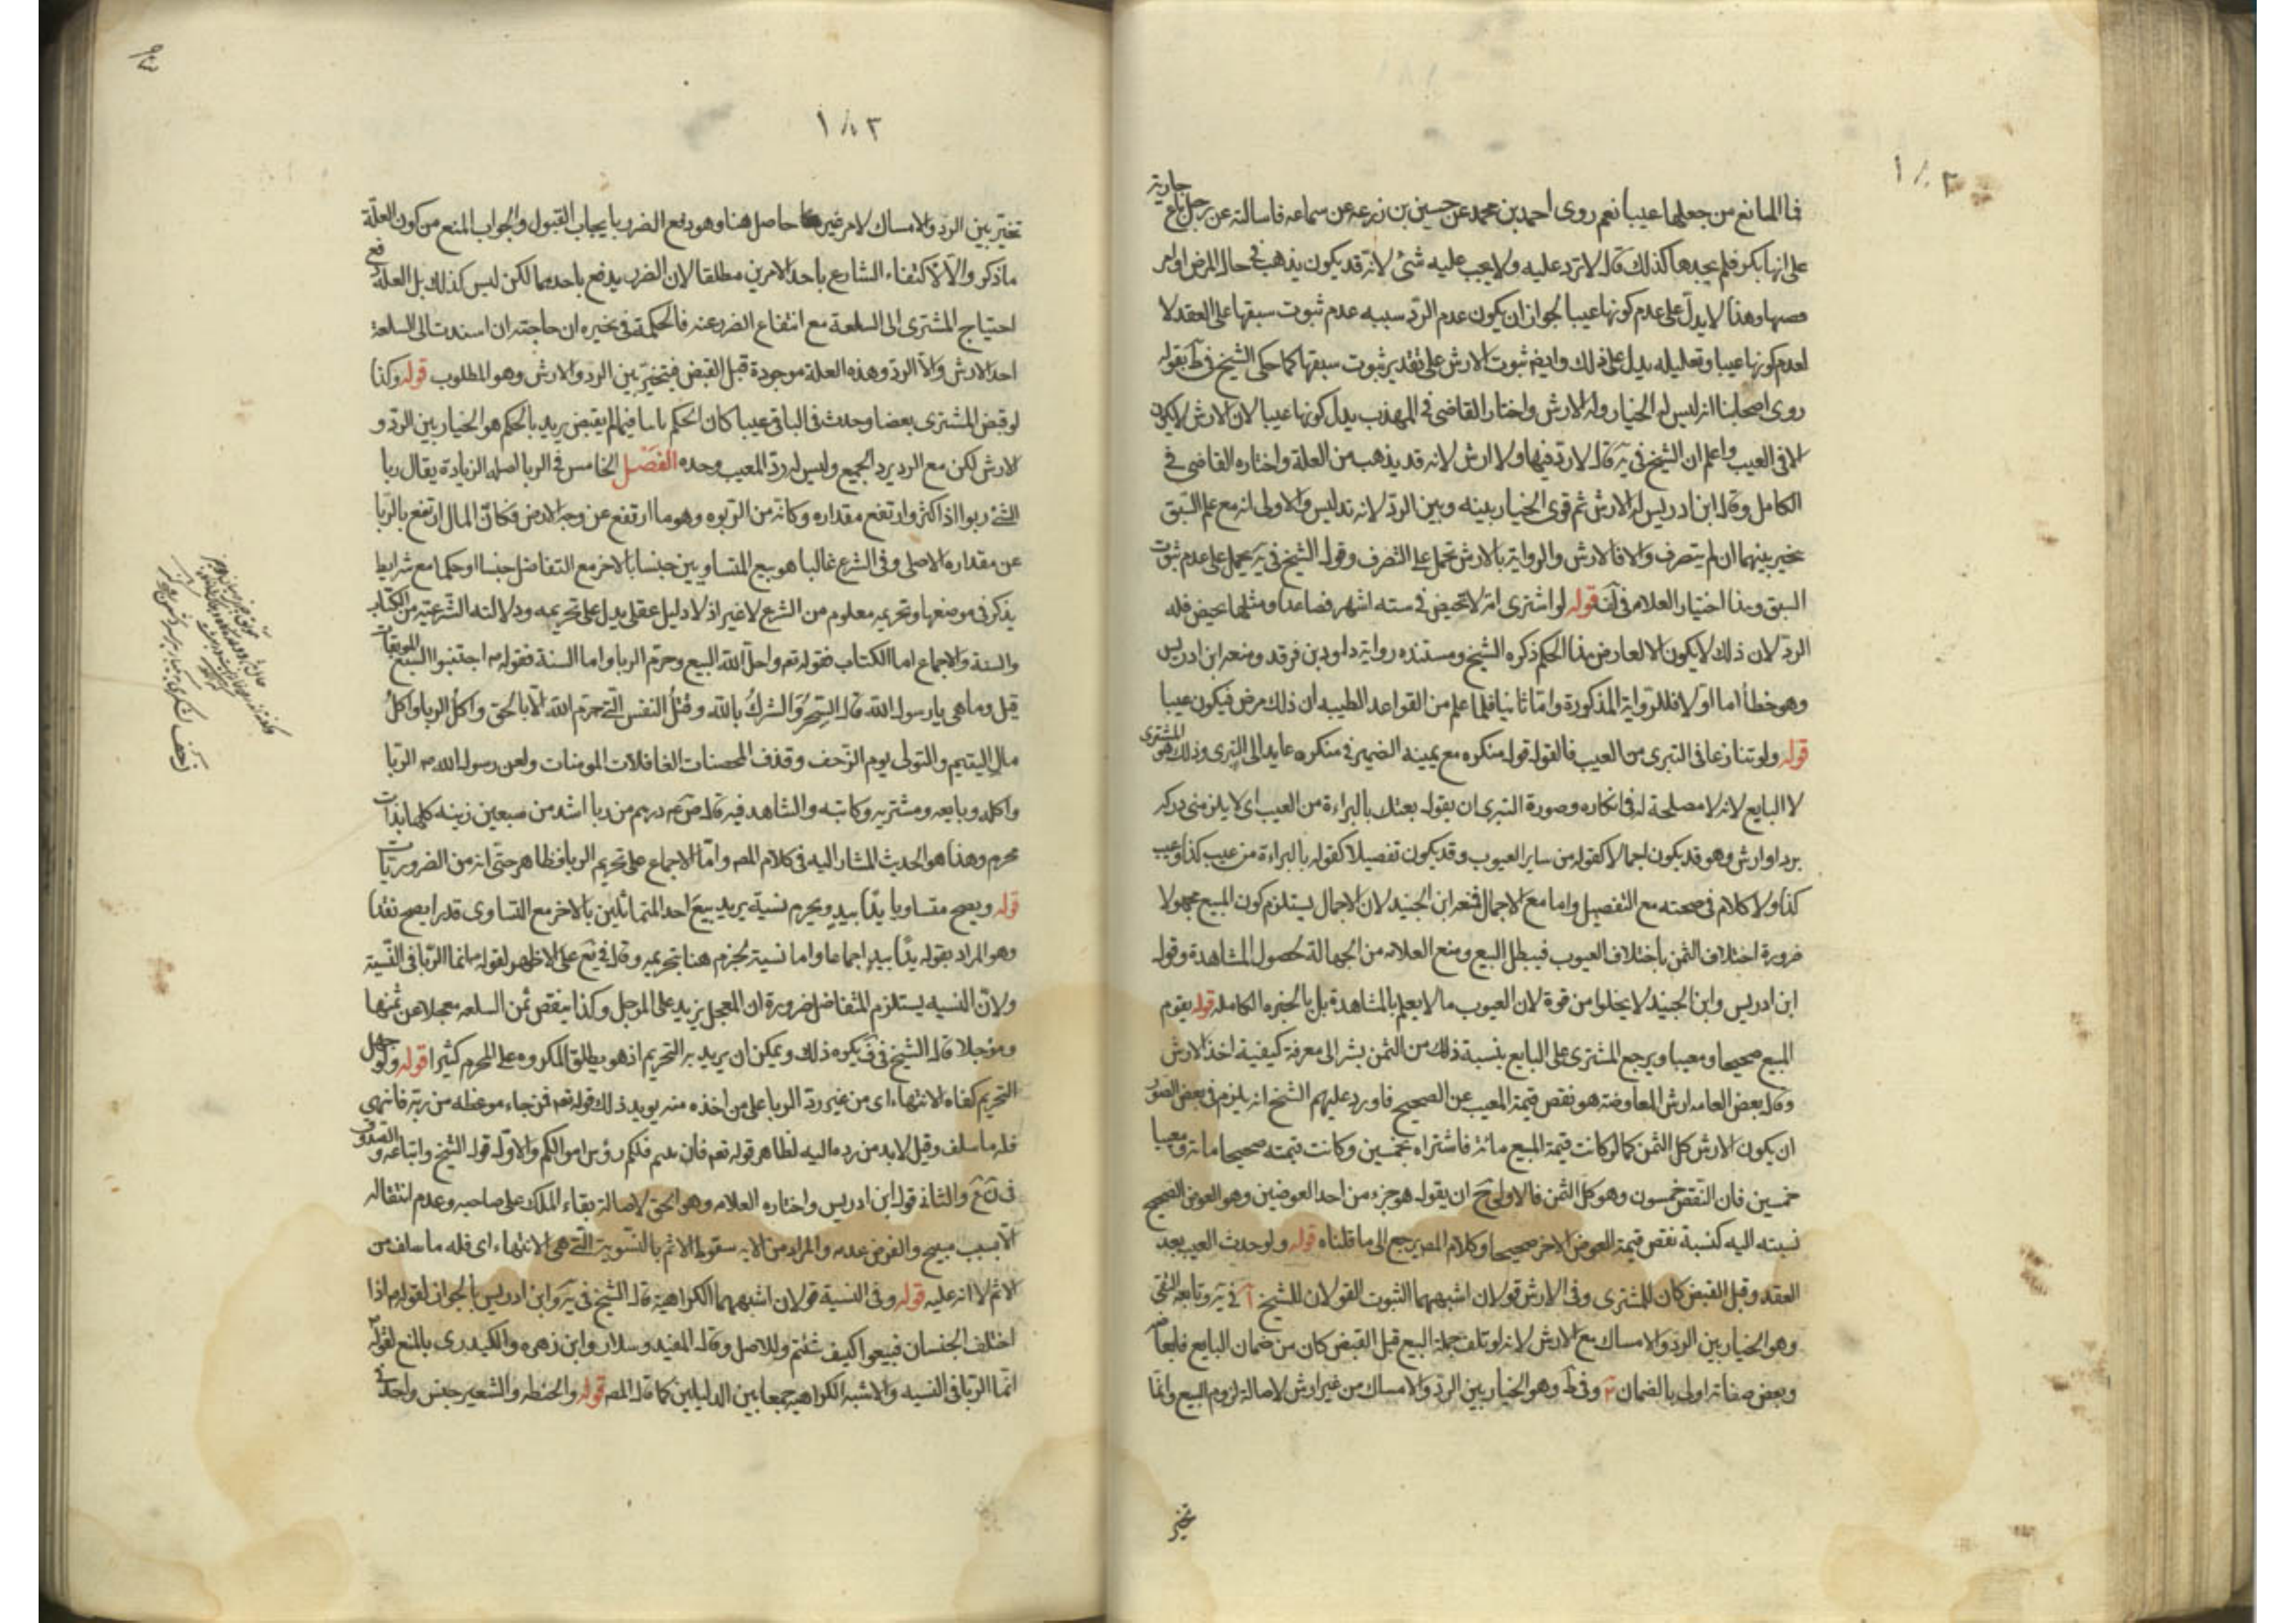 ١٨٢
فما المانع من جعلها عيبا نعم روى احمد بن محمد عن حسين بن زرعه عن سماعه قا سالته عن رجل باع جارية
على انها بكر فلم يجدها كذلك قال لا ترد عليه ولا يجب عليه شئ لانه قد يكون يذهب في حال المرض او امر
يصيبها وهذا لا يدل على عدم كونها عيبا لجواز ان يكون عدم الرد سببه عدم ثبوت سبقها على العقد لا
لعدم كونها عيبا وتعليله يدل على ذلك وايضا ثبوت الارش على تقدير ثبوت سبقها كما حكى الشيخ في ط بقوله
روى اصحابنا انه ليس له الخيار وله الارش واختار القاضي في المهذب يدل كونها عيبا لان الارش لا يكون
الا في العيب واعلم ان الشيخ في يه قال لا رد فيها ولا ارش لانه قد يذهب من العلة واختاره القاضي في
الكامل وقال ابن ادريس له الارش ثم قوى الخيار بينه وبين الرد لانه تدليس والاولى انه مع علم السبق
يخير بينهما ان لم يتصرف والا فالارش والرواية بالارش تحمل على التصرف وقول الشيخ في يه يحمل على عدم ثبوت
السبق وهذا اختيار العلامه في قوله لو اشترى امة لا تحيض في سته اشهر فصاعدا ومثلها تحيض فله
الرد لان ذلك لا يكون الا لعارض هذا الحكم ذكره الشيخ ومستنده رواية داود بن فرقد ومنعه ابن ادريس
وهو خطأ اما اولا فللرواية المذكورة واما ثانيا فلما علم من القواعد الطبيه ان ذلك مرض فيكون عيبا
قوله ولو تنازعا في التبرى من العيب فالقول قول منكره مع يمينه الضمير في منكره عايد الى التبرى وذلك هو المشترى
لا البايع لانه لا مصلحة له في انكاره وصورة التبرى ان يقول بعتك بالبراءة من العيب اى لا يلزمنى درك
برد او ارش وهو قد يكون اجمالا كقوله من ساير العيوب وقد يكون تفصيلا كقوله بالبراءة من عيب كذا وعيب
كذا ولا كلام في صحته مع التفصيل واما مع الاجمال فمنعه ابن الجنيد لان الاجمال يستلزم كون المبيع مجهولا
ضرورة اختلاف الثمن باختلاف العيوب فيبطل البيع ومنع العلامه من الجهالة لحصول المشاهدة وقول
ابن ادريس وابن الجنيد لا يخلوا من قوة لان العيوب ما لا يعلم بالمشاهدة بل بالخبره الكامله قوله يقوم
المبيع صحيحا ومعيبا ويرجع المشترى على البايع بنسبة ذلك من الثمن يشر الى معرفة كيفية اخذ الارش
وقال بعض العامه ارش المعاوضه هو نقص قيمة المعيب عن الصحيح فاورد عليهم الشيخ انه يلزم في بعض الصور
ان يكون الارش كل الثمن كما لو كانت قيمة المبيع مائة فاشتراه بخمسين وكانت قيمته صحيحا مائة ومعيبا
خمسين فان النقص خمسون وهو كل الثمن فالاولى ح ان يقول هو جزء من احد العوضين وهو العوض الصحيح
نسبته اليه كنسبة نقص قيمة العوض الاخر صحيحا وكلام المص يرجع الى ما قلناه قوله ولو حدث العيب بعد
العقد وقبل القبض كان للمشترى وفي الارش قولان اشبههما الثبوت القولان للشيخ آ في يه وتابعه التقى
وهو الخيار بين الرد والامساك مع الارش لانه لو تلف جملة المبيع قبل القبض كان من ضمان البايع فابعاضه
وبعض صفاته اولى بالضمان وفي ط وهو الخيار بين الرد والامساك من غير ارش لاصالة لزوم البيع وانما
تخير
١٨٣
تخير بين الرد والامساك لامر غير حاصل هنا وهو دفع الضرر بايجاب القبول والجواب المنع من كون العلة
ماذكر والا لاكتفاء الشارع باحد الامرين مطلقا لان الضرر يدفع باحدهما لكن ليس كذلك بل العلة في
احتياج المشترى الى السلعة مع انتفاع الضرر عنه فالحكمة في تخيره ان حاجته ان اسندت الى السلعة
اخذ الارش والا الرد وهذه العلة موجودة قبل القبض فيتخير بين الرد والارش وهو المطلوب قوله وكذا
لو قبض المشترى بعضا وحدث في الباقى عيبا كان الحكم باسا فيما لم يقبض يريد بالحكم هو الخيار بين الرد و
الارش لكن مع الرد يرد الجميع وليس له رد المعيب وحده الفصل الخامس في الربا اصله الزيادة يقال ربا
الشئ ربوا اذا كثر وارتفع مقداره وكانه من الربوه وهو ما ارتفع عن وجه الارض فكان المال ارتفع بالربا
عن مقداره الاصلى وفي الشرع غالبا هو بيع المتساويين جنسا بالاخر مع التفاضل جنسا او حكما مع شرايط
يذكر في موضعها وتحريمه معلوم من الشرع لا غير اذ لا دليل عقلى يدل على تحريمه ودلالته الشرعيه من الكتاب
والسنة والاجماع اما الكتاب فقوله تعم واحل الله البيع وحرم الربا واما السنة فقوله ص اجتنبوا السبع الموبقات
قيل وما هى يا رسول الله قال السحر والشرك بالله وقتل النفس التى حرم الله الا بالحق واكل الربا واكل
مال اليتيم والتولى يوم الزحف وقذف المحصنات الغافلات المومنات ولعن رسول الله ص الربا
واكله وبايعه ومشتريه وكاتبه والشاهد فيه قال ص درهم من ربا اشد من سبعين زينه كلها بذات
محرم وهذا هو الحديث المشار اليه في كلام المص واما الاجماع على تحريم الربا فظاهر حتى انه من الضروريات
قوله ويصح متساويا يدا بيد ويحرم نسية يريد بيع احد المتماثلين بالاخر مع التساوى قدرا يصح نقدا
وهو المراد بقوله يدا بيد اجماعا واما نسية لجزم هنا بتحريمه وقال في يع على الاظهر لقوله ص انما الربا في النسية
ولان النسيه يستلزم التفاضل ضرورة ان المعجل يزيد على المؤجل وكذا ينقص ثمن السلعه معجلا عن ثمنها
ومؤجلا قال الشيخ في ف يكره ذلك ويمكن ان يريد به التحريم اذ هو يطلق المكروه على المحرم كثيرا قوله ولو جهل
التحريم كفاه الانتهاء اى من غير رد الربا على من اخذه منه يويد ذلك قوله تعم فمن جاءه موعظه من ربه فانتهى
فله ما سلف وقيل لابد من رد ماليه لظاهر قوله تعم فان تبتم فلكم رؤس اموالكم والاول قول الشيخ واتباعه والصدوق
في ن ع والثانى قول ابن ادريس واختاره العلامه وهو الحق لاصالة بقاء الملك على صاحبه وعدم انتقاله
الا بسبب مبيح والفرض عدمه والمراد من الايه سقوط الاثم بالتسوية التى هى الانتهاء اى فله ما سلف من
الاثم لا انه عليه قوله وفي النسية قولان اشبههما الكراهية قال الشيخ في يه وابن ادريس بالجواز لقوله ص اذا
اختلف الجنسان فبيعوا كيف شئتم وللاصل وقال المفيد وسلار وابن زهره والكيدرى بالمنع لقوله
انما الربا في النسيه والاشبه الكراهيه جمعا بين الدليلين كما قال المص قوله والحنطه والشعير جنس واحد في